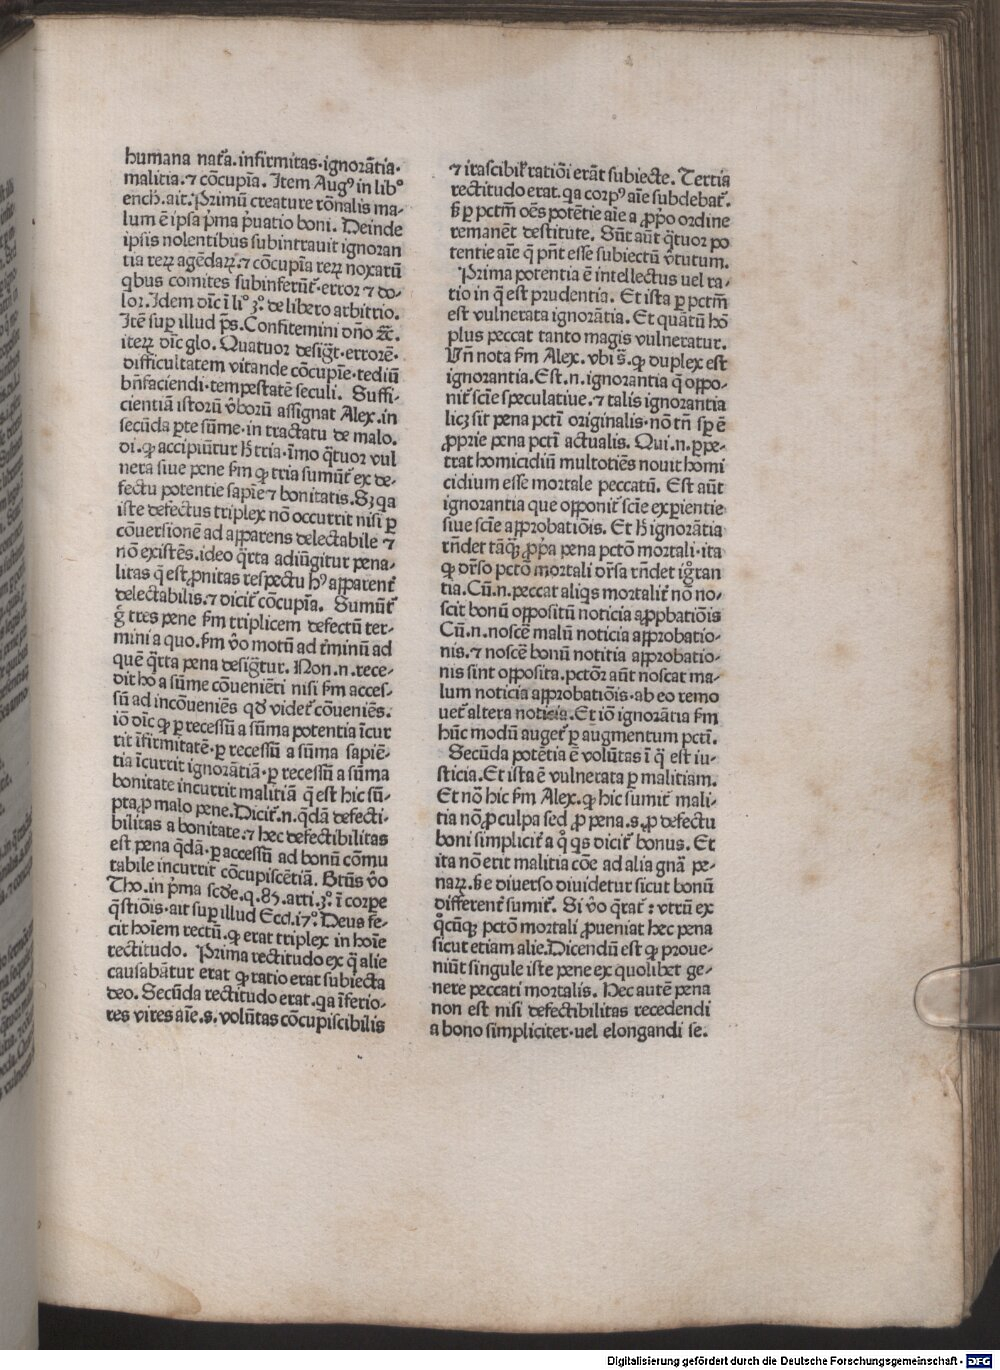 humana nat᷑a. infirmitas· ignorãtia·
malitia. ⁊ cõcupĩa. Item Augꝰ in libº
ench. ait. Primũ creature rõnalis ma-
lum ẽ ipsa p̾ma p̾uatio boni. Deinde
ipsis nolentibus subintrauit ignoran
tia reꝝ agẽdaꝝ. ⁊ cõcupĩa reꝝ noxarũ
qbus comites subinferũt᷑· error ⁊ do-
lor. Idem dic̃ ĩ liº 3º. de libero arbitrio.
Itẽ sup illud p̃s. Confitemini dño ⁊c̃.
iteꝝ dic̃ glo. Quatuor desig̃t· errorẽ·
difficultatem vitande cõcupĩe· tediũ
bñfaciendi· tempestatẽ seculi. Suffi-
cientiã istorũ v̾borũ assignat Alex. in
secũda ꝑte sũme· in tractatu de malo.
di. ꝙ accipiũtur h̾ tria· ĩmo q̃tuor vul
nera siue pene ẜm ꝙ tria sumũt᷑ ex de-
fectu potentie sapĩe ⁊ bonitatis. Sꝫ qa
iste defectus triplex nõ occurrit nisi ꝑ
cõuersionẽ ad apparens delectabile ⁊
nõ existẽs. ideo q̃rta adiũgitur pena-
litas q̃ est ꝓnitas respectu hꝰ apparent᷑
delectabilis. ⁊ dicit᷑ cõcupĩa. Sumũt᷑
g̊ tres pene ẜm triplicem defectũ ter-
mini a quo. ẜm v̾o motũ ad t᷑minũ ad
quẽ q̃rta pena desig̃tur. Non .n. rece-
dit ho a sũme cõueniẽti nisi ẜm acces-
sũ ad incõueniẽs qđ videt᷑ cõueniẽs.
iõ dic̃ ꝙ ꝑ recessũ a sũma potentia ĩcur
rit ĩfirmitatẽ· ꝑ recessũ a sũma sapiẽ-
tia ĩcurrit ignorãtiã· ꝑ recessũ a sũma
bonitate incurrit malitiã q̃ est hic sũ-
pta ꝓ malo pene. Dicit᷑ .n. q̃dã defecti-
bilitas a bonitate. ⁊ hec defectibilitas
est pena q̃dã· ꝑ accessũ ad bonũ cõmu
tabile incurrit cõcupiscẽtiã. Btũs v̾o
Tho. in p̾ma scđe. q. 85. arti. 3º. ĩ corpe
q̃stiõis· ait sup illud Eccl. 17º. Deus fe-
cit hoĩem rectũ. ꝙ erat triplex in hoĩe
rectitudo. Prima rectitudo ex q̃ alie
causabãtur erat ꝙ ratio erat subiecta
deo. Secũda rectitudo erat. qa ĩferio-
res vires aĩe .s. volũtas cõcupiscibilis
⁊ irascibil᷑ ratiõi erãt subiecte. Tertia
rectitudo erat. qa corpꝰ aĩe subdebat᷑.
ß ꝑ pctm̃ oẽs potẽtie aĩe a ꝓpõ ordine
remanẽt destitute. Sũt aũt q̃tuor po
tentie aĩe q̃ pñt esse subiectũ v̾tutum.
Prima potentia ẽ intellectus uel ra-
tio in q̃ est prudentia. Et ista ꝑ pctm̃
est vulnerata ignorãtia. Et quãtũ hõ
plus peccat tanto magis vulneratur.
Vñ nota ẜm Alex. vbi s̃. ꝙ duplex est
ignorantia. Est .n. ignorantia q̃ oppo-
nit᷑ scĩe speculatiue. ⁊ talis ignorantia
licꝫ sit pena pcti originalis· nõ tñ sp ẽ
ꝓprie pena pcti actualis. Qui .n. ꝑpe-
trat homicidiũ multotiẽs nouit homi
cidium esse mortale peccatũ. Est aũt
ignorantia que opponit᷑ scĩe experientie
siue scĩe approbatiõis. Et h̾ ignorãtia
rñdet tãqꝫ ꝓp̃a pena pctõ mortali· ita
ꝙ đrso pctõ mortali đrsa rñdet ig̊ran
tia. Cũ .n. peccat aliqs mortalit᷑ nõ no-
scit bonũ oppositũ noticia appbatiõis
Cũ .n. noscẽ malũ noticia approbatio-
nis. ⁊ noscẽ bonũ notitia approbatio-
nis sint opposita. pctor̃ aũt noscat ma-
lum noticia approbatiõis· ab eo remo
uet᷑ altera noticia. Et iõ ignorãtia ẜm
hũc modũ auget᷑ ꝑ augmentum pcti.
Secũda potẽtia ẽ volũtas ĩ q̃ est iu-
sticia. Et ista ẽ vulnerata ꝑ malitiam.
Et nõ hic ẜm Alex. ꝙ hic sumit᷑ mali-
tia nõ ꝓ culpa sed ꝓ pena .s. ꝓ defectu
boni simplicit᷑ a q̊ qs dicit᷑ bonus. Et
ita nõ erit malitia cõe ad alia gñã pe-
naꝝ. ß e diuerso diuidetur sicut bonũ
different᷑ sumit᷑. Si v̾o q̃rat᷑: vtrũ ex
q̊cũqꝫ pctõ mortali ꝓueniat hec pena
sicut etiam alie. Dicendũ est ꝙ proue-
niũt singule iste pene ex quolibet ge-
nere peccati mortalis. Hec autẽ pena
non est nisi defectibilitas recedendi
a bono simpliciter· uel elongandi se.
Digitalisierung gefördert durch die Deutsche Forschungsgemeinschaft - DFG